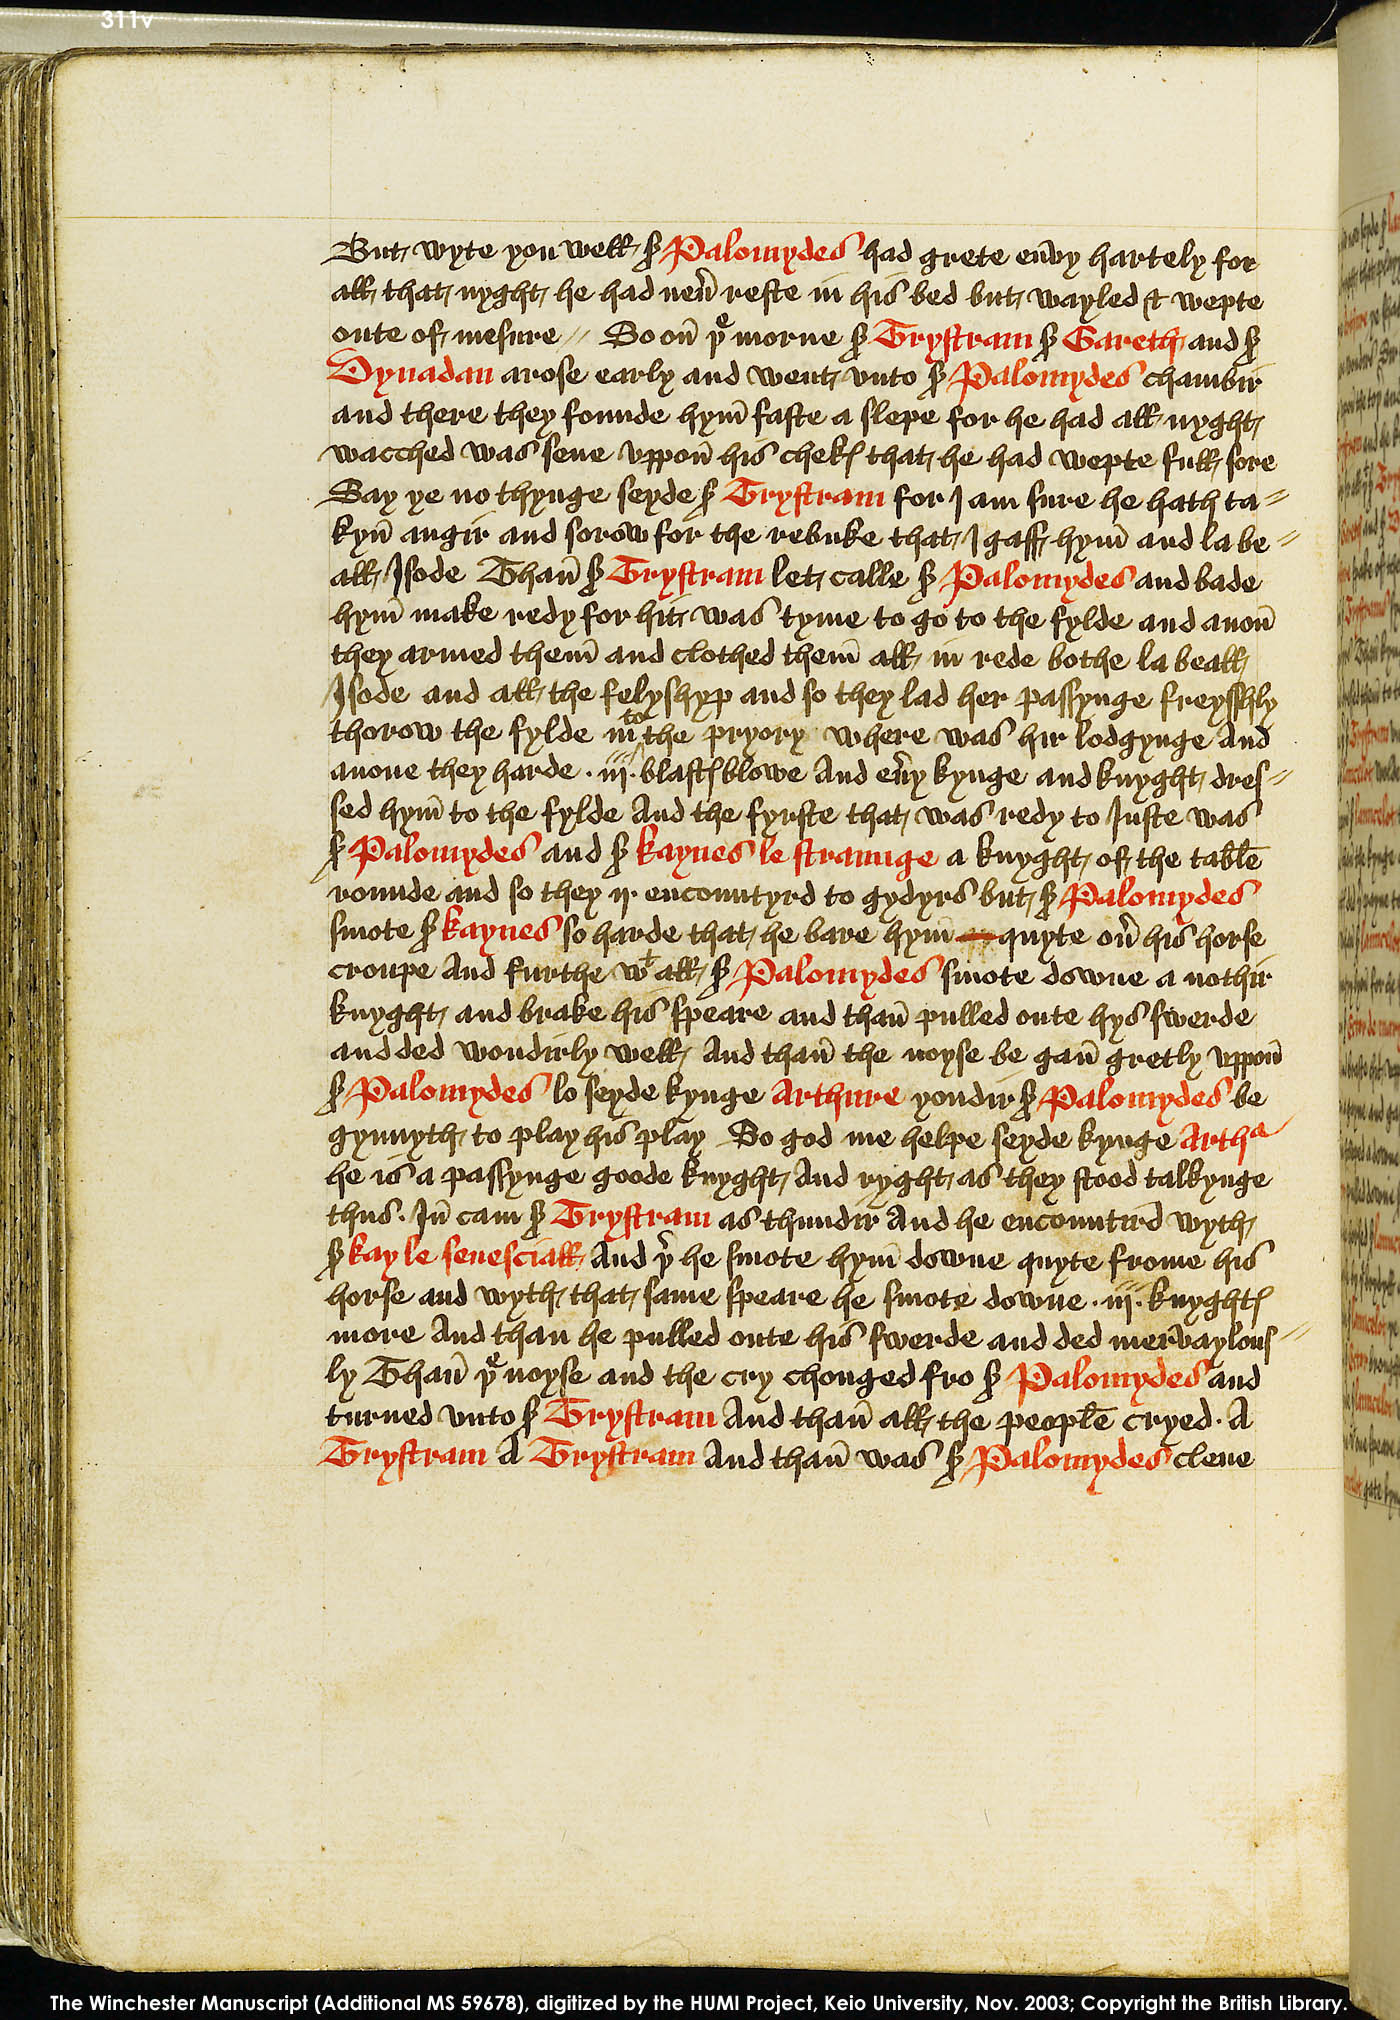 311v
But wyte you well sr Palomydes had grete envy hartely for
all that nyght he had nev̄ reste in his bed but wayled & wepte
oute of mesure // So on̄ þe morne sr Trystram sr Gareth and sr
Dynadan arose early and went vnto sr Palomydes chambir
and there they founde hym̄ faste a slepe for he had all nyght
wacched was sene vppon̄ his chekꝭ that he had wepte full sore
Say ye no thynge seyde sr Trystram for I am sure he hath ta=
kyn̄ angir and sorow for the rebuke that I gaff hym̄ and la be=
all Isode Than̄ sr Trystram let calle sr Palomydes and bade
hym̄ make redy for hit was tyme to go to the fylde and anon̄
they armed them̄ and clothed them̄ all in rede bothe la beall
Isode and all the felyshyp and so they lad her passynge freysshly
thorow the fylde in to the pryory where was hir lodgynge And
anone they harde .iij. blastꝭ blowe And ev̄y kynge and knyght dres=
sed hym̄ to the fylde And the fyrste that was redy to Juste was
sr Palomydes and sr kaynes le straunge a knyght of the table
rounde and so they ij encountyrd to gydyrs but sr Palomydes
smote sr kaynes so harde that he bare hym̄ quyte ov̄ his horse
croupe And furthe wt all sr Palomydes smote downe a nothir
knyght and brake his speare and than̄ pulled oute hys swerde
and ded wondirly well And than̄ the noyse be gan̄ gretly vppon̄
sr Palomydes lo seyde kynge Arthure yondir sr Palomydes be
gynnyth to play his play So god me helpe seyde kynge Artha
he is a passynge goode knyght And ryght as they stood talkynge
thus. In̄ cam sr Trystram as thundir And he encountird wyth
sr kay le senesciall And þr he smote hym̄ downe quyte frome his
horse and wyth that same speare he smote downe .iij. knyghtꝭ
more And than he pulled oute his swerde and ded merv̄aylous=
ly Than̄ þe noyse and the cry chonged fro sr Palomydes and
turned vnto sr Trystram And than̄ all the people cryed. A
Trystram A Trystram And than̄ was sr Palomydes clene
The Winchester Manuscript (Additional MS 59678), digitized by the HUMI Project, Keio University, Nov. 2003; Copyright the British Library.